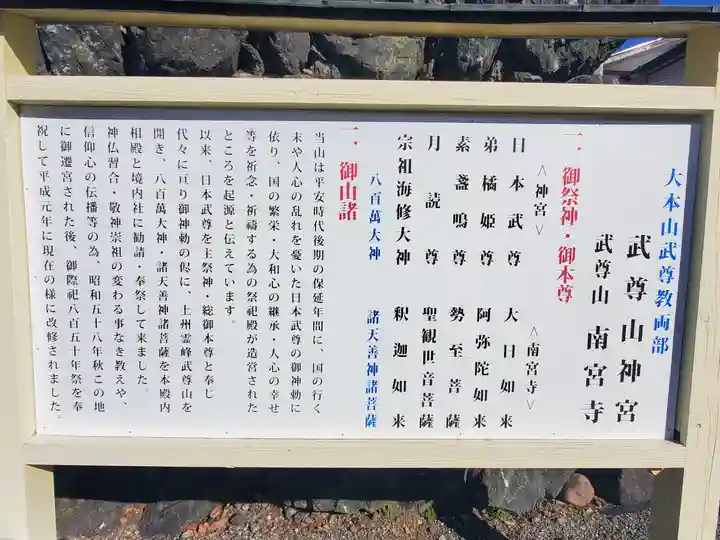 大本山武尊教両部
武尊山神宮
武尊山 南宮寺
一・御祭神・御本尊
＜神宮＞ ＜南宮寺＞
日本武尊 大日如来
弟橘姫尊 阿弥陀如来
素盞鳴尊 勢至菩薩
月読尊 聖観世音菩薩
宗祖海修大神 釈迦如来
八百萬大神 諸天善神諸菩薩
一・御山諸
当山は平安時代後期の保延年間に、国の行く
末や人心の乱れを憂いた日本武尊の御神勅に
依り、国の繁栄・大和心の継承・人心の幸せ
等を祈念・祈禱する為の祭祀殿が造営された
ところを起源と伝えています。
以来、日本武尊を主祭神・総御本尊と奉じ
代々に亘り御神勅の侭に、上州霊峰武尊山を
開き、八百萬大神・諸天善神諸菩薩を本殿内
相殿と境内社に勧請・奉祭して来ました。
神仏習合・敬神崇祖の変わる事なき教えや、
信仰心の伝播等の為、昭和五十八年秋この地
に御遷宮された後、御際祀八百五十年祭を奉
祝して平成元年に現在の様に改修されました。